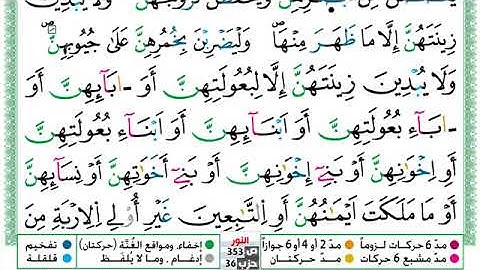 زِينَتَهُنَّ إِلَّا مَا ظَهَرَ مِنْهَا وَلْيَضْرِبْنَ بِخُمُرِهِنَّ عَلَىٰ جُيُوبِهِنَّ
وَلَا يُبْدِينَ زِينَتَهُنَّ إِلَّا لِبُعُولَتِهِنَّ أَوْ ءَابَآئِهِنَّ أَوْ
ءَابَآءِ بُعُولَتِهِنَّ أَوْ أَبْنَآئِهِنَّ أَوْ أَبْنَآءِ بُعُولَتِهِنَّ
أَوْ إِخْوَٰنِهِنَّ أَوْ بَنِىٓ إِخْوَٰنِهِنَّ أَوْ بَنِىٓ أَخَوَٰتِهِنَّ أَوْ نِسَآئِهِنَّ
أَوْ مَا مَلَكَتْ أَيْمَٰنُهُنَّ أَوِ ٱلتَّٰبِعِينَ غَيْرِ أُو۟لِى ٱلْإِرْبَةِ مِنَ
مدّ 6 حركات لزوماً مدّ 2 أو 4 أو 6 جوازاً
مدّ مشبع 6 حركات مدّ حركتان
النور
353
حزب 36
إخفاء، ومواقع الغُنَّة (حركتان) تفخيم
إدغام، وما لا يُلفَظ قلقلة